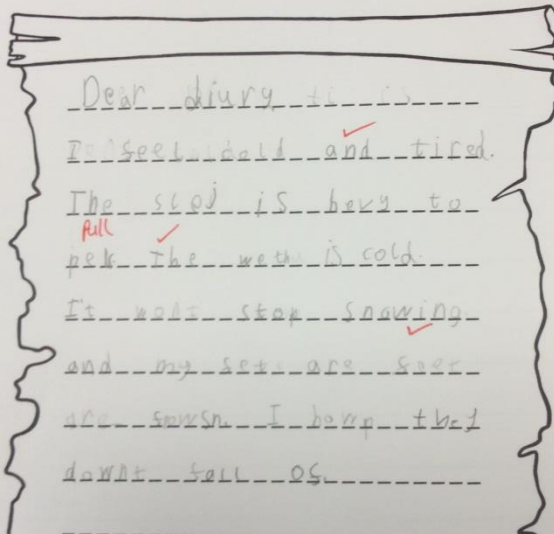 Dear diury
I feel cold and tired.
The sloj is hevy to
pull
pek The weth is cold.
It wont stop snowing
and my
are I the1
downt fall of.